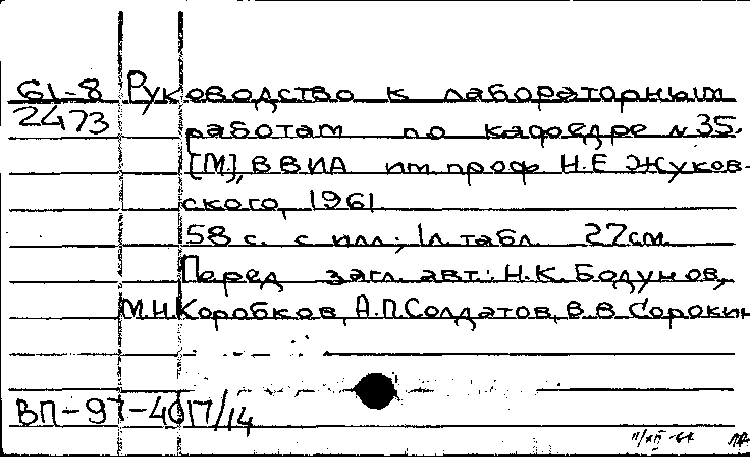 61-8 Руководство к лабораторным
2473 работам по кафедре № 35.
[М], ВВИА им. проф. Н.Е. Жуков-
ского, 1961.
58 с. с илл.; 1л. табл. 27см.
Перед загл. авт.: Н.К. Бодунов,
М.Н. Коробков, А.П. Солдатов, В.В. Сорокин
ВП-97-40П/14